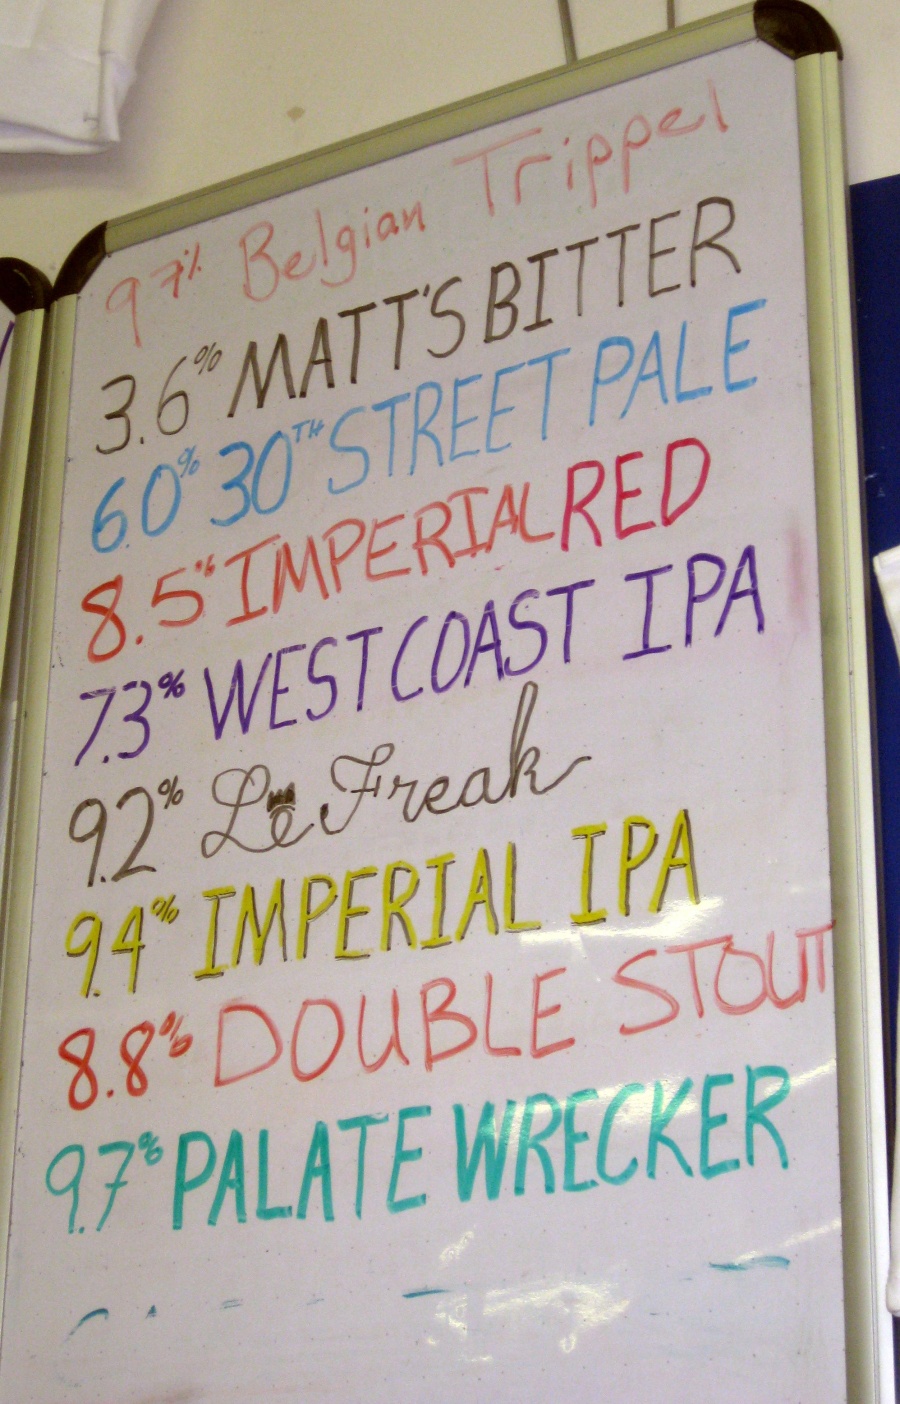 9.7% Belgian Trippel
3.6% MATT'S BITTER
6.0% 30TH STREET PALE
8.5% IMPERIAL RED
7.3% WEST COAST IPA
9.2% Le Freak
9.4% IMPERIAL IPA
8.8% DOUBLE STOUT
9.7% PALATE WRECKER